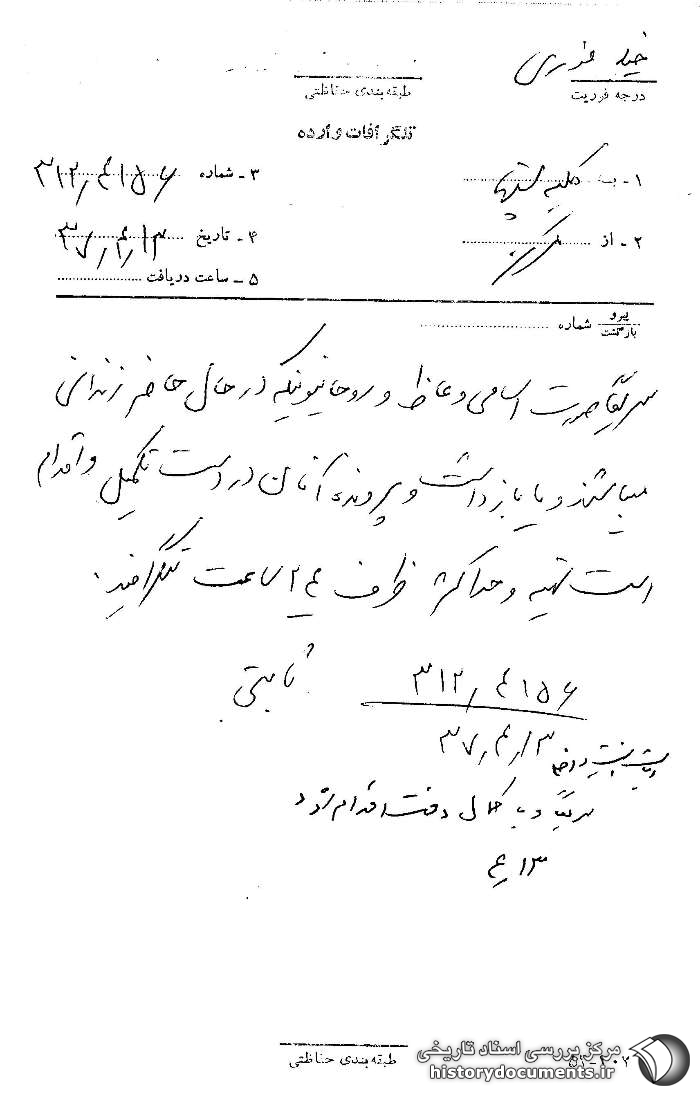 خیلی فوری
درجه فوریت
طبقه‌بندی حفاظتی
تلگرافات وارده
۱ - به کلیه
۳ - شماره ۳۱۲٫۴۱۵۶
۲ - از مرکز
۴ - تاریخ ۳۷٫۴٫۱۳
۵ - ساعت دریافت
پیرو
بازگشت شماره
سریعا صورت اسامی وعاظ و روحانیونیکه در حال حاضر زندانی
میباشند و یا بازداشت و پرونده آنان در دست تکمیل و اقدام
است تهیه و حداکثر ظرف ۲۴ ساعت تلگرافید.
ثابتی
۳۱۲٫۴۱۵۶
۳۷٫۴٫۱۳
سریعا و با کمال دقت اقدام شود
۱۳ ۴
طبقه‌بندی حفاظتی
مرکز بررسی اسناد تاریخی
historydocuments.ir